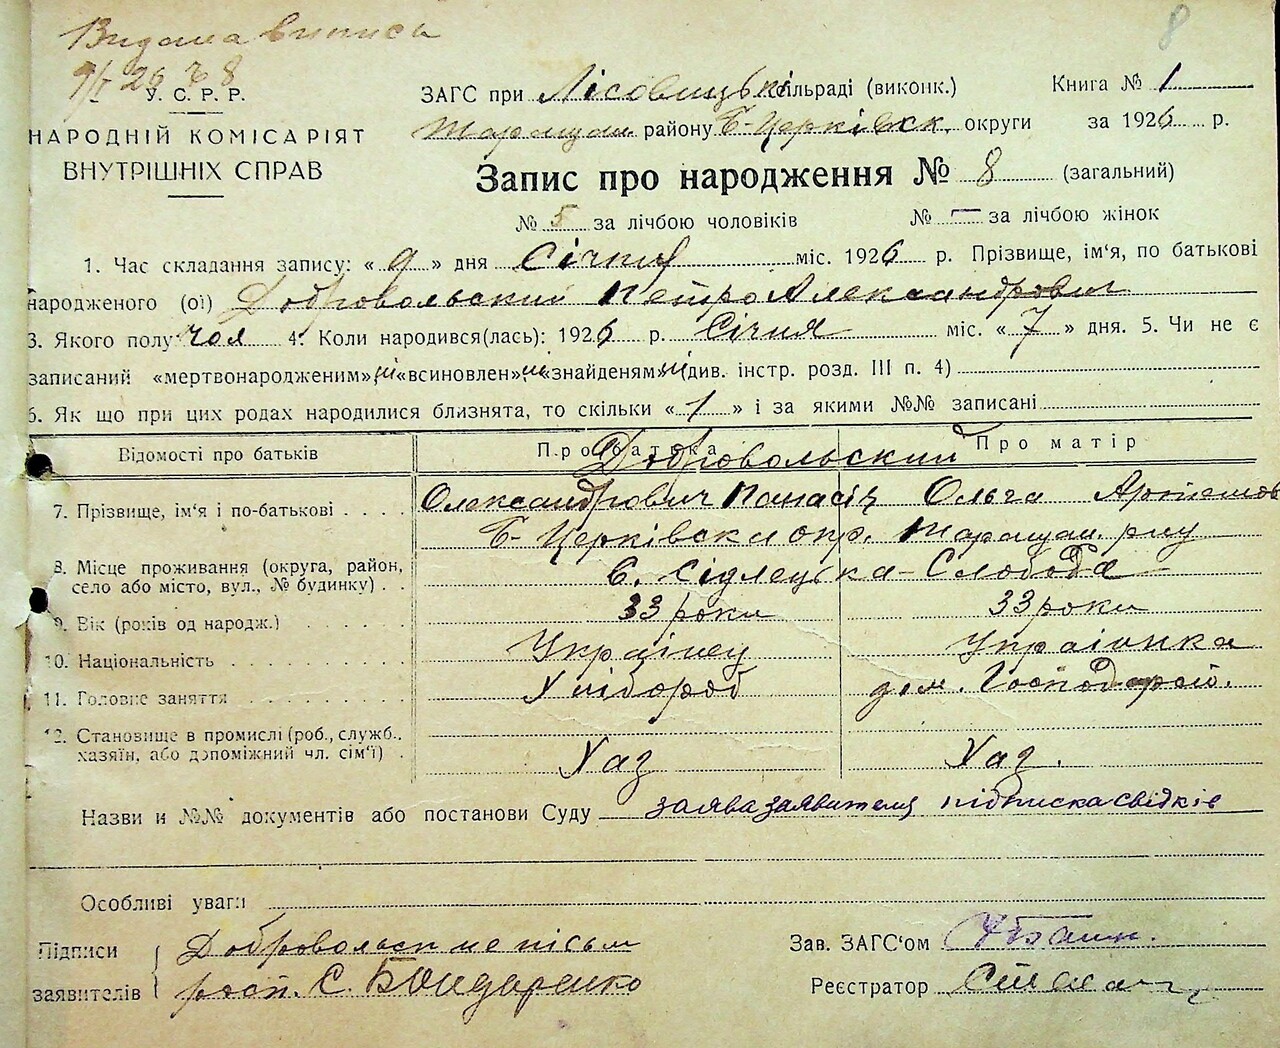 8
Видана випись
9/I 26 № 8
У. С. Р. Р.
НАРОДНІЙ КОМІСАРІЯТ
ВНУТРІШНІХ СПРАВ
ЗАГС при Лісовицькі сільраді (виконк.) Книга № 1
Таращан району Б-Церківськ. округи за 1926 р.
Запис про народження № 8 (загальний)
№ 5 за лічбою чоловіків № — за лічбою жінок
1. Час складання запису: « 9 » дня Січня міс. 1926 р. Прізвище, ім‘я, по батькові
народженого (ої) Добровольский Петро Александрович
3. Якого полу чол 4. Коли народився(лась): 1926 р. Січня міс. « 7 » дня. 5. Чи не є
записаний «мертвонародженим» ні «всиновлен» ні «знайденям» ні (див. інстр. розд. III п. 4)
6. Як що при цих родах народилися близнята, то скільки « 1 » і за якими №№ записані
Відомості про батьків Про батька Про матір
Добровольский
7. Прізвище, ім‘я і по-батькові Олександрович Панасів Ольга Артемов
Б-Церківськи окр. Таращан. рну
8. Місце проживання (округа, район, село або місто, вул., № будинку) С. Сідлецька-Слобода
9. Вік (років од народж.) 33 роки 33 роки
10. Національність Українец Українка
11. Головне заняття Хлібороб дом. Господарство.
12. Становище в промислі (роб., служб., хазяїн, або допоміжний чл. сім‘ї) Хаз Хаз.
Назви и №№ документів або постанови Суду заява заявителя підписка свідків
Особливі уваги
Підписи Добровольск не пісьм Зав. ЗАГС‘ом
заявителів росп. С. Бондаренко Реєстратор